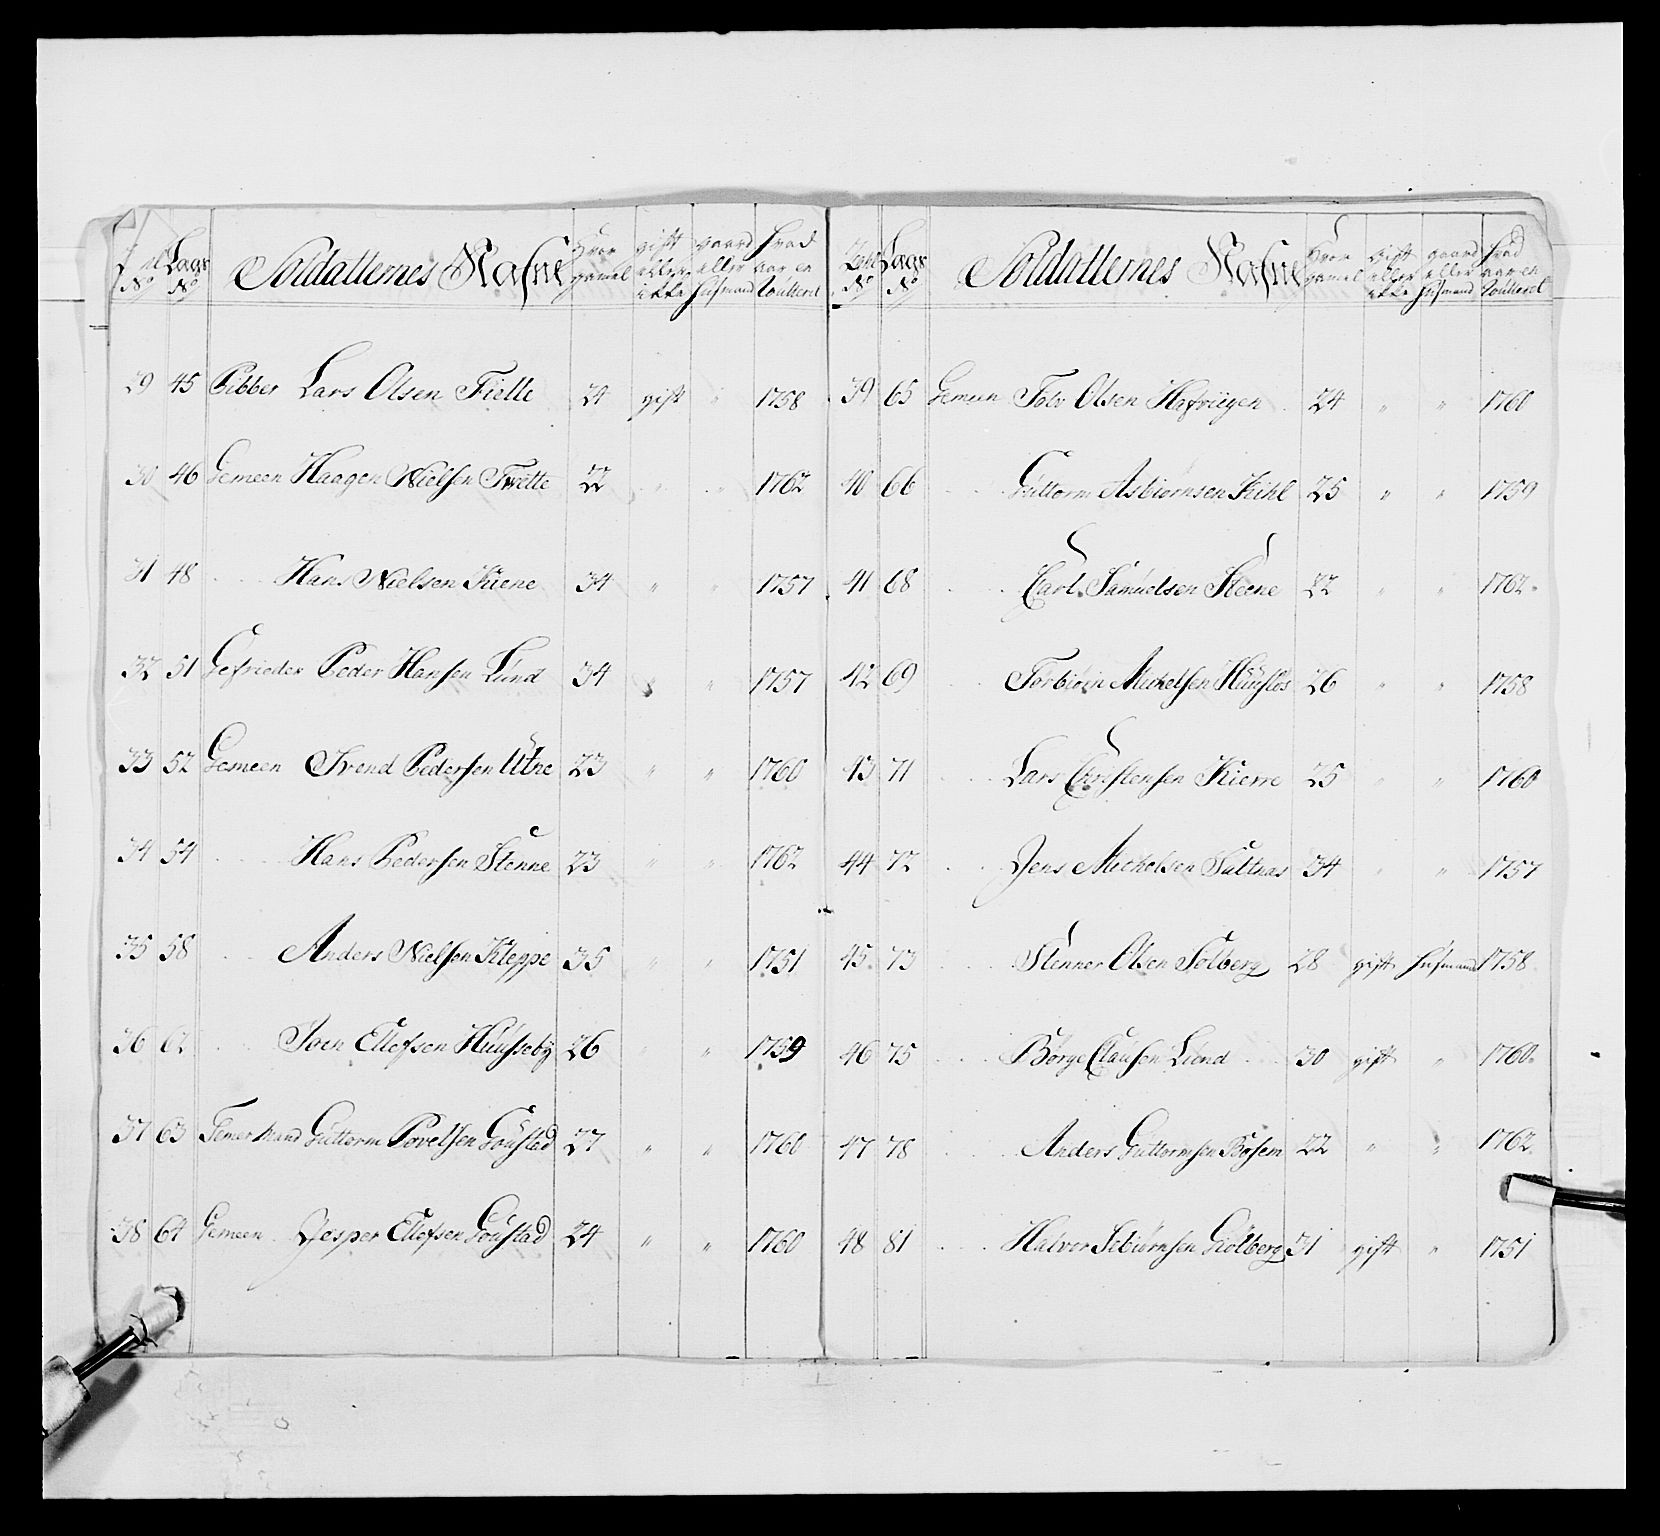 Lags No Soldatternes Nafne Hvor gamel gift eller ikke gaard eller husmand hvad aar en roulleret
29 45 Pibber Lars Olsen Tielte 24 gift " 1758
30 46 Gemeen Haagen Nielsen Tvette 22 " " 1762
31 48 Hans Nielsen Kiene 34 " " 1757
32 51 Gefrieder Peder Hansen Lund 34 " " 1757
33 52 Gemeen Svend Pedersen Utne 23 " " 1760
34 54 Hans Pedersen Stenne 23 " " 1762
35 58 Anders Nielsen Kleppe 35 " " 1751
36 62 Joen Ellefsen Huusseby 26 " " 1759
37 63 Guttorm Povelsen Goustad 27 " " 1760
38 64 Gemeen Jesper Ellefsen Goustad 24 " " 1760
No Lags No Soldatternes Nafne Hvor gamel gift eller ikke gaard eller husmand hvad aar en roulleret
39 65 Gemeen Tolv Olsen 24 " " 1760
40 66 Guttorm Asbiørnsen Kihl 25 " " 1759
41 68 Carl Samuelsen Steene 22 " " 1762
42 69 Torbiørn Michelsen Huuslos 26 " " 1758
43 71 Lars Christensen Kierre 25 " " 1760
44 72 Jens Michelsen 34 " " 1757
45 73 Stenner Olsen Solberg 28 gift husmand 1758
46 75 Børge Clausen Lund 30 gift " 1760
47 78 Anders Guttormsen Bosem 22 " " 1762
48 81 Halvor Giølberg 31 gift " 1751